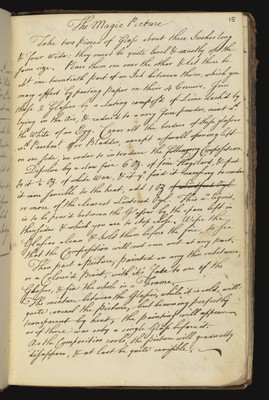 15
The Magic Picture
Take two pieces of Glass about three Inches long
& four wide: they must be quite level & exactly of the
same size. Place them one over the other & let there be
abt. one twentieth part of an Inch between them, which you
may effect by pasting Paper on their 4 Corners. Join
these 2 Glasses by a luting compos'd of Lime slack'd by
lying in the Air, & reduc'd to a very fine powder, mixt wth.
the White of an Egg. Cover all the borders of these glasses
wth. Parchmt. or Bladder, except a small opening left
on one side, in order to introduce the following Composition.
Dissolve by a slow fire 6 Oz. of fine Hogslard, & put
to it ½ Oz. of white Wax, & if you find it necessary to render
it more sensible to the heat, add 1 Oz
or more of the clearest Linseed Oyl. This in liquid,
is to be pour'd between the Glasses by the space left in
the side, & which you are to stop close. Wipe the
Glasses clean & hold them before the fire, to see
that the Composition will not run out at any part.
Then past a Picture, painted on any thin substance,
or a Colour'd Print, with its Face to one of the
Glasses, & fix the whole in a Frame.
The mixture between the Glasses, while it is cold, will
quite conceal the Picture, but becoming perfectly
transparent by heat, the painting will appear
as if there was only a single Glass before it.
As the Composition cools, the Picture will gradually
disappear, & at last be quite invisible.